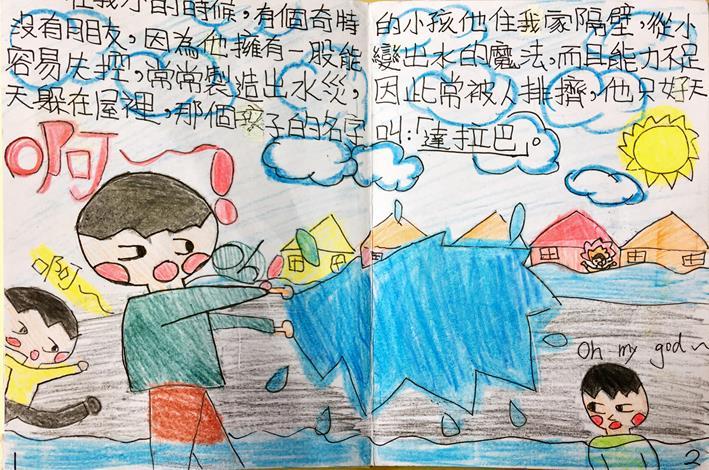 在我小的時候,有個奇特的小孩他住我家隔壁,從小
沒有朋友,因為他擁有一股能變出水的魔法,而且能力不足
容易失控,常常製造出水災,因此常被人排擠,他只好天
天躲在屋裡,那個孩子的名字叫:「達拉巴」。
啊~!
啊~
Oh my god~
1
2